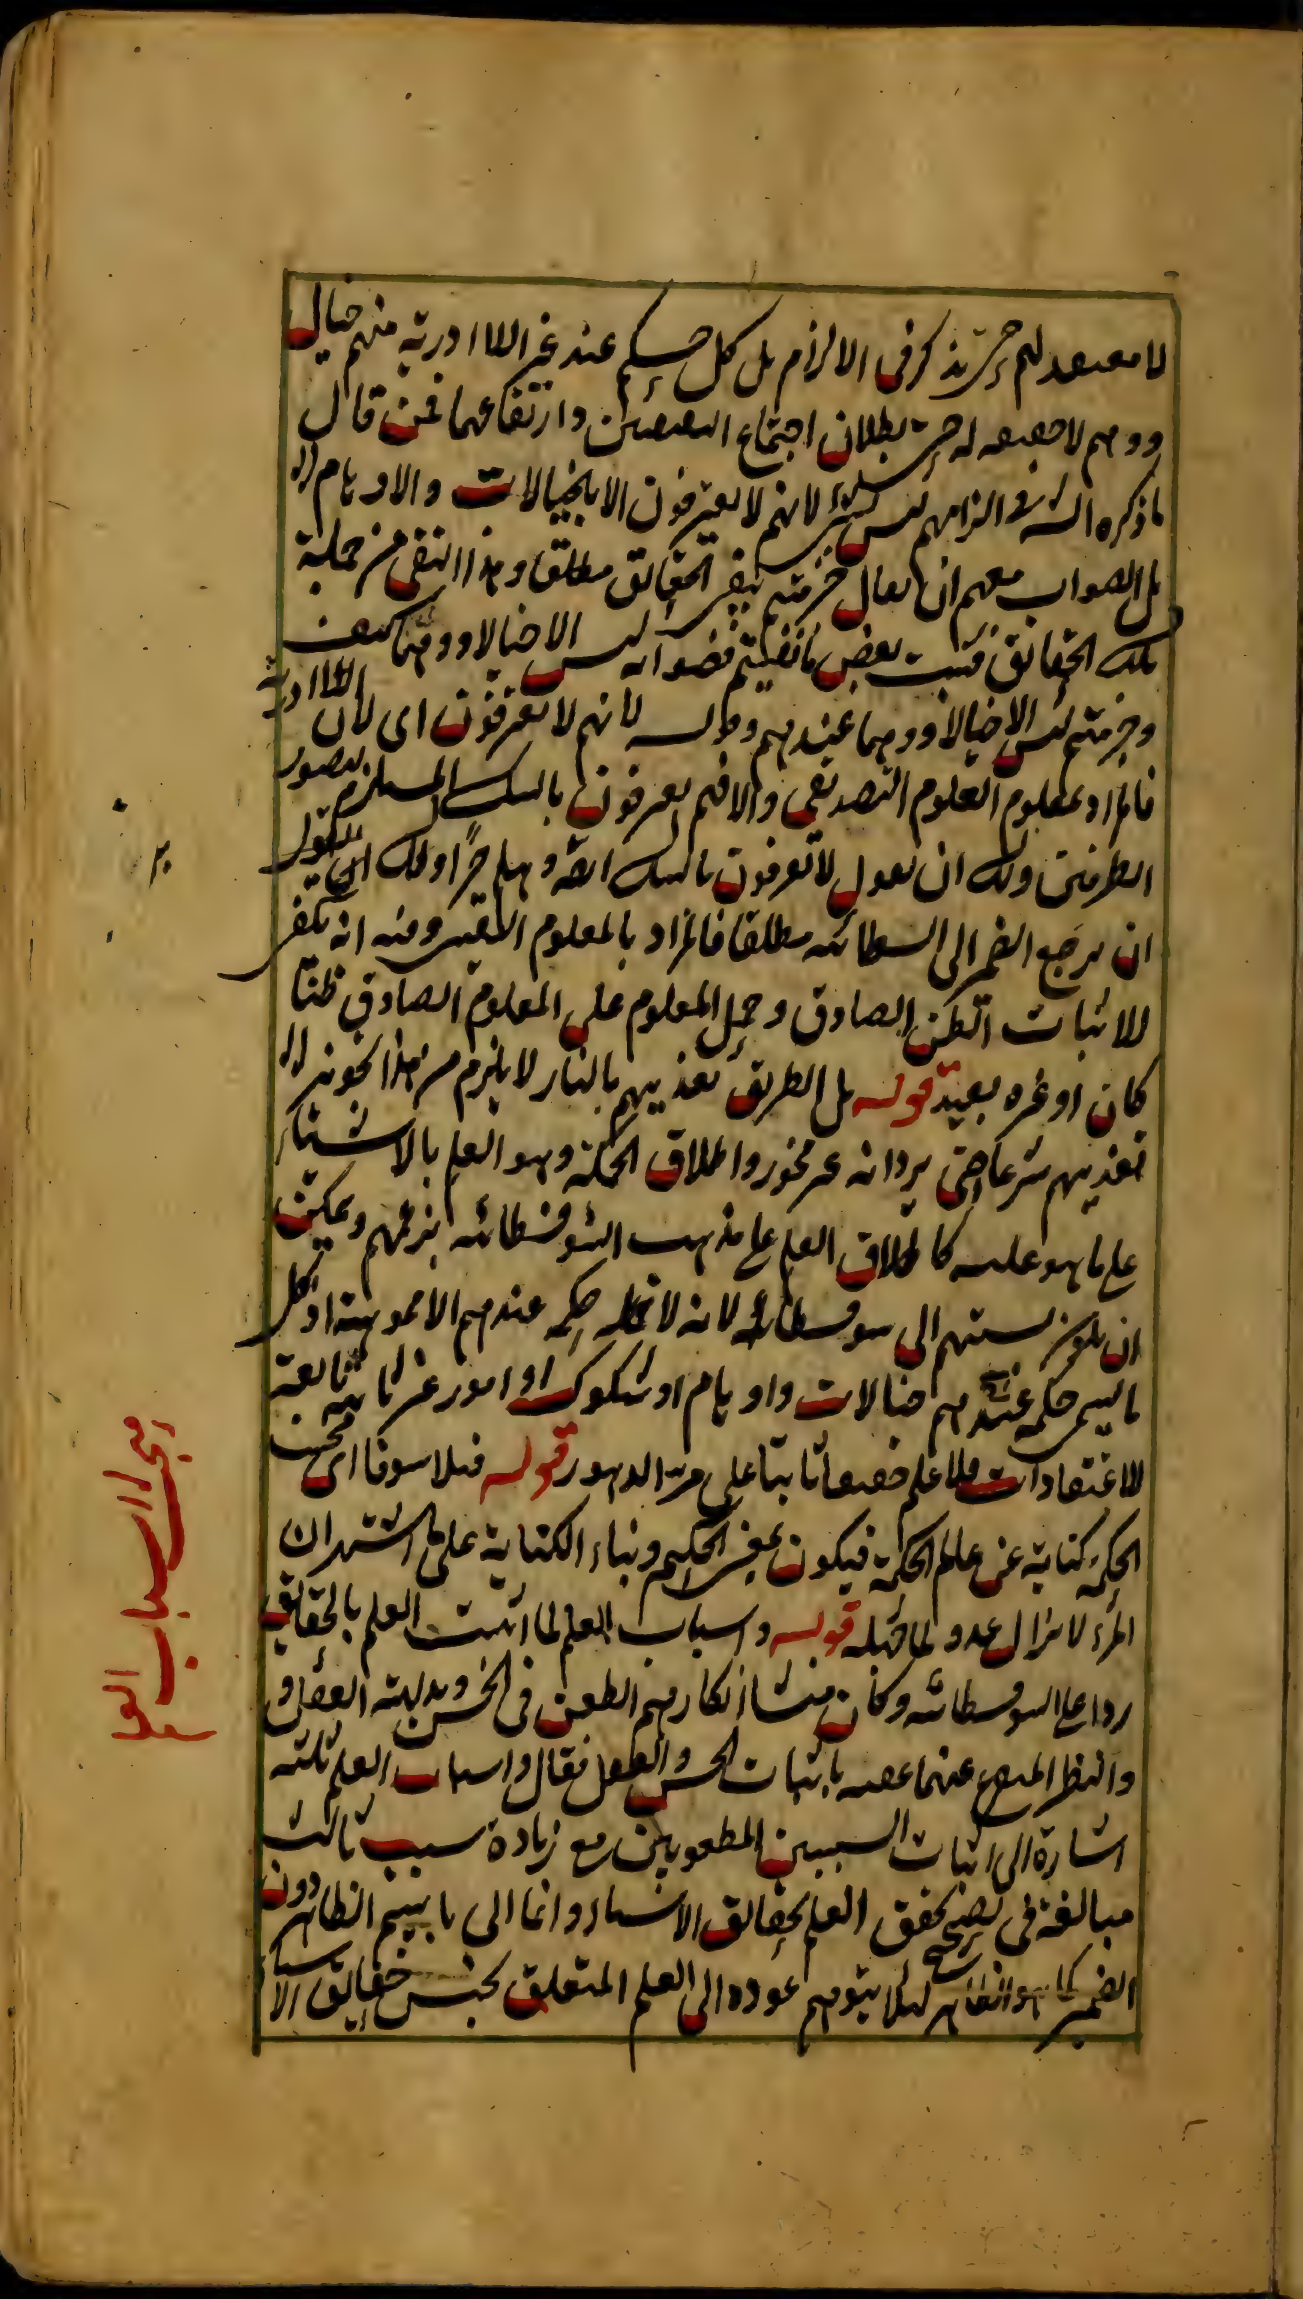 لا معتقد لهم حتى يذكر فى الالزام بل كل حكم عند غير اللاادرية منهم خيال
ووهم لا حقيقة له حتى بطلان اجتماع النقيضين وارتفاعهما فمن قال
ما ذكره الشـ فى الزامهم ليس بشئ لانهم لا يعترفون الا بالخيالات والاوهام
بل الصواب معهم ان يقال جزمتم بنفى الحقائق مطلقا وهذا النفى من جملة
تلك الحقائق فثبت بعض ما نفيتم فضوابه ليس الا خيالا ووهما كيف
وجزمتم ليس الا خيالا ووهما عندهم وقوله لانهم لا يعترفون اى لان اللاادرية
فالمراد بمعلوم المعلوم التصديقى والا فهم يعرفون بالشك المستلزم لتصور
الطرفين ولك ان تقول لا يعرفون بالشك ايضا وهلم جرا ولك ان تقول
ان يرجع الضمير الى السوفسطائية مطلقا فالمراد بالمعلوم اليقينى وفيه انه يكفى
للاثبات الظن الصادق وحمل المعلوم على المعلوم الصادق ظنا
كان او غيره بعيد قوله بل الطريق تعذيبهم بالنار لا يلزم من هذا تجويز
تعذيبهم شرعا حتى يرد انه غير مجوز واطلاق الحكمة وهو العلم بالاشياء
على ما هو عليه كاطلاق العلم على مذهب السوفسطائية بزعمهم ويمكن
ان يكون نسبتهم الى سوفسطا لانه لا حكمة عندهم الا مموهة اذ كل
ما يسمى حكمة عندهم خيالات واوهام او شكوك او امور غير ثابتة تابعة
للاعتقادات فلا علم حقيقا ثابتا على مر الدهور قوله فيلا سوفا اى محب
الحكمة كناية عن عالم الحكمة فيكون بمعنى الحكيم وبناء الكناية على ما اشتهر ان
المرء لا يزال عدوا لما جهله قوله واسباب العلم لما اثبت العلم بالحقائق
ردا على السوفسطائية وكان منشا انكارهم الطعن فى الحس وبديهة العقل و
والنظر المتفرع عنهما عقبه باثبات الحس والعقل فقال واسباب العلم ثلثة
اشارة الى اثبات السببين المطعونين مع زيادة سبب ثالث
مبالغة فى تحقق العلم بحقائق الاشياء وانما الى باسم الظاهر دون
الضمير كما هو الظاهر لئلا يتوهم عوده الى العلم المتعلق بجنس حقائق الاشياء
اسباب العلم